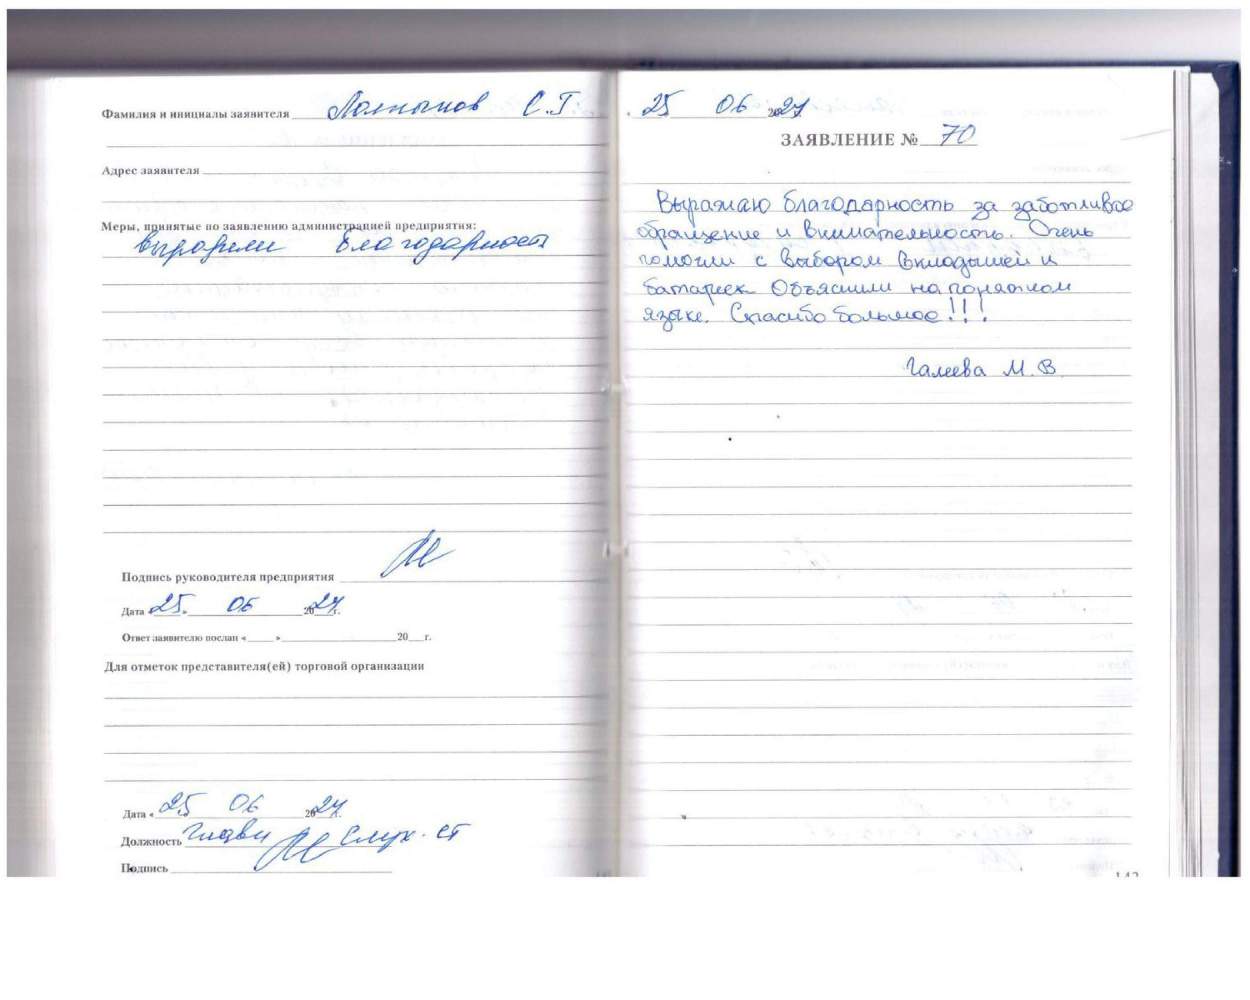 Фамилия и инициалы заявителя С.Г.
Адрес заявителя
Меры, принятые по заявлению администрацией предприятия:
выразили благодарность
Подпись руководителя предприятия
Дата « 25 » 06 2024 г.
Ответ заявителю послан « » 20 г.
Для отметок представителя(ей) торговой организации
Дата « 25 06 2024
Должность
Подпись
25 06 2024
ЗАЯВЛЕНИЕ № 70
Выражаю благодарность за заботливое
обращение и внимательность. Очень
помогли с выбором вкладышей и
батареек. Объяснили на понятном
языке. Спасибо большое!!!
Галеева М.В.